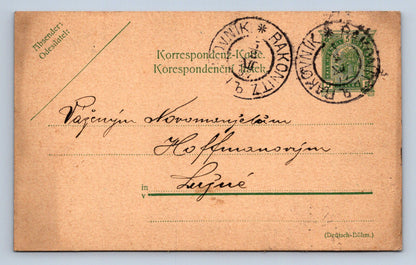 Absender:
Odesílatel:
Korrespondenz-Karte.
Korespondenční lístek.
RAKOVNÍK * RAKONITZ
RAKOVNÍK * RAKONITZ
Váženým Novomanželům
Hoffmanovým
in
v
Lužné
(Deutsch-Böhm.)